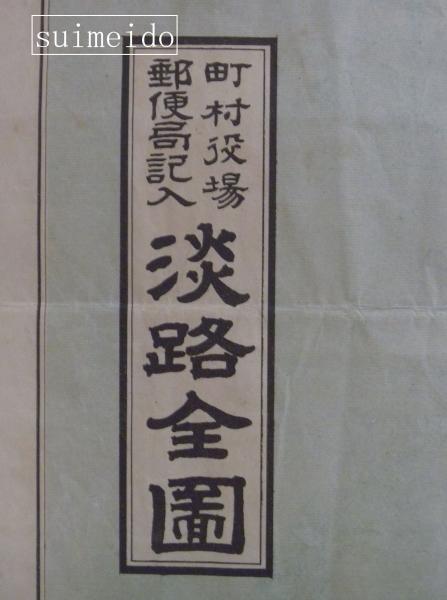 suimeido
町村役場
郵便局記入
淡路全圖